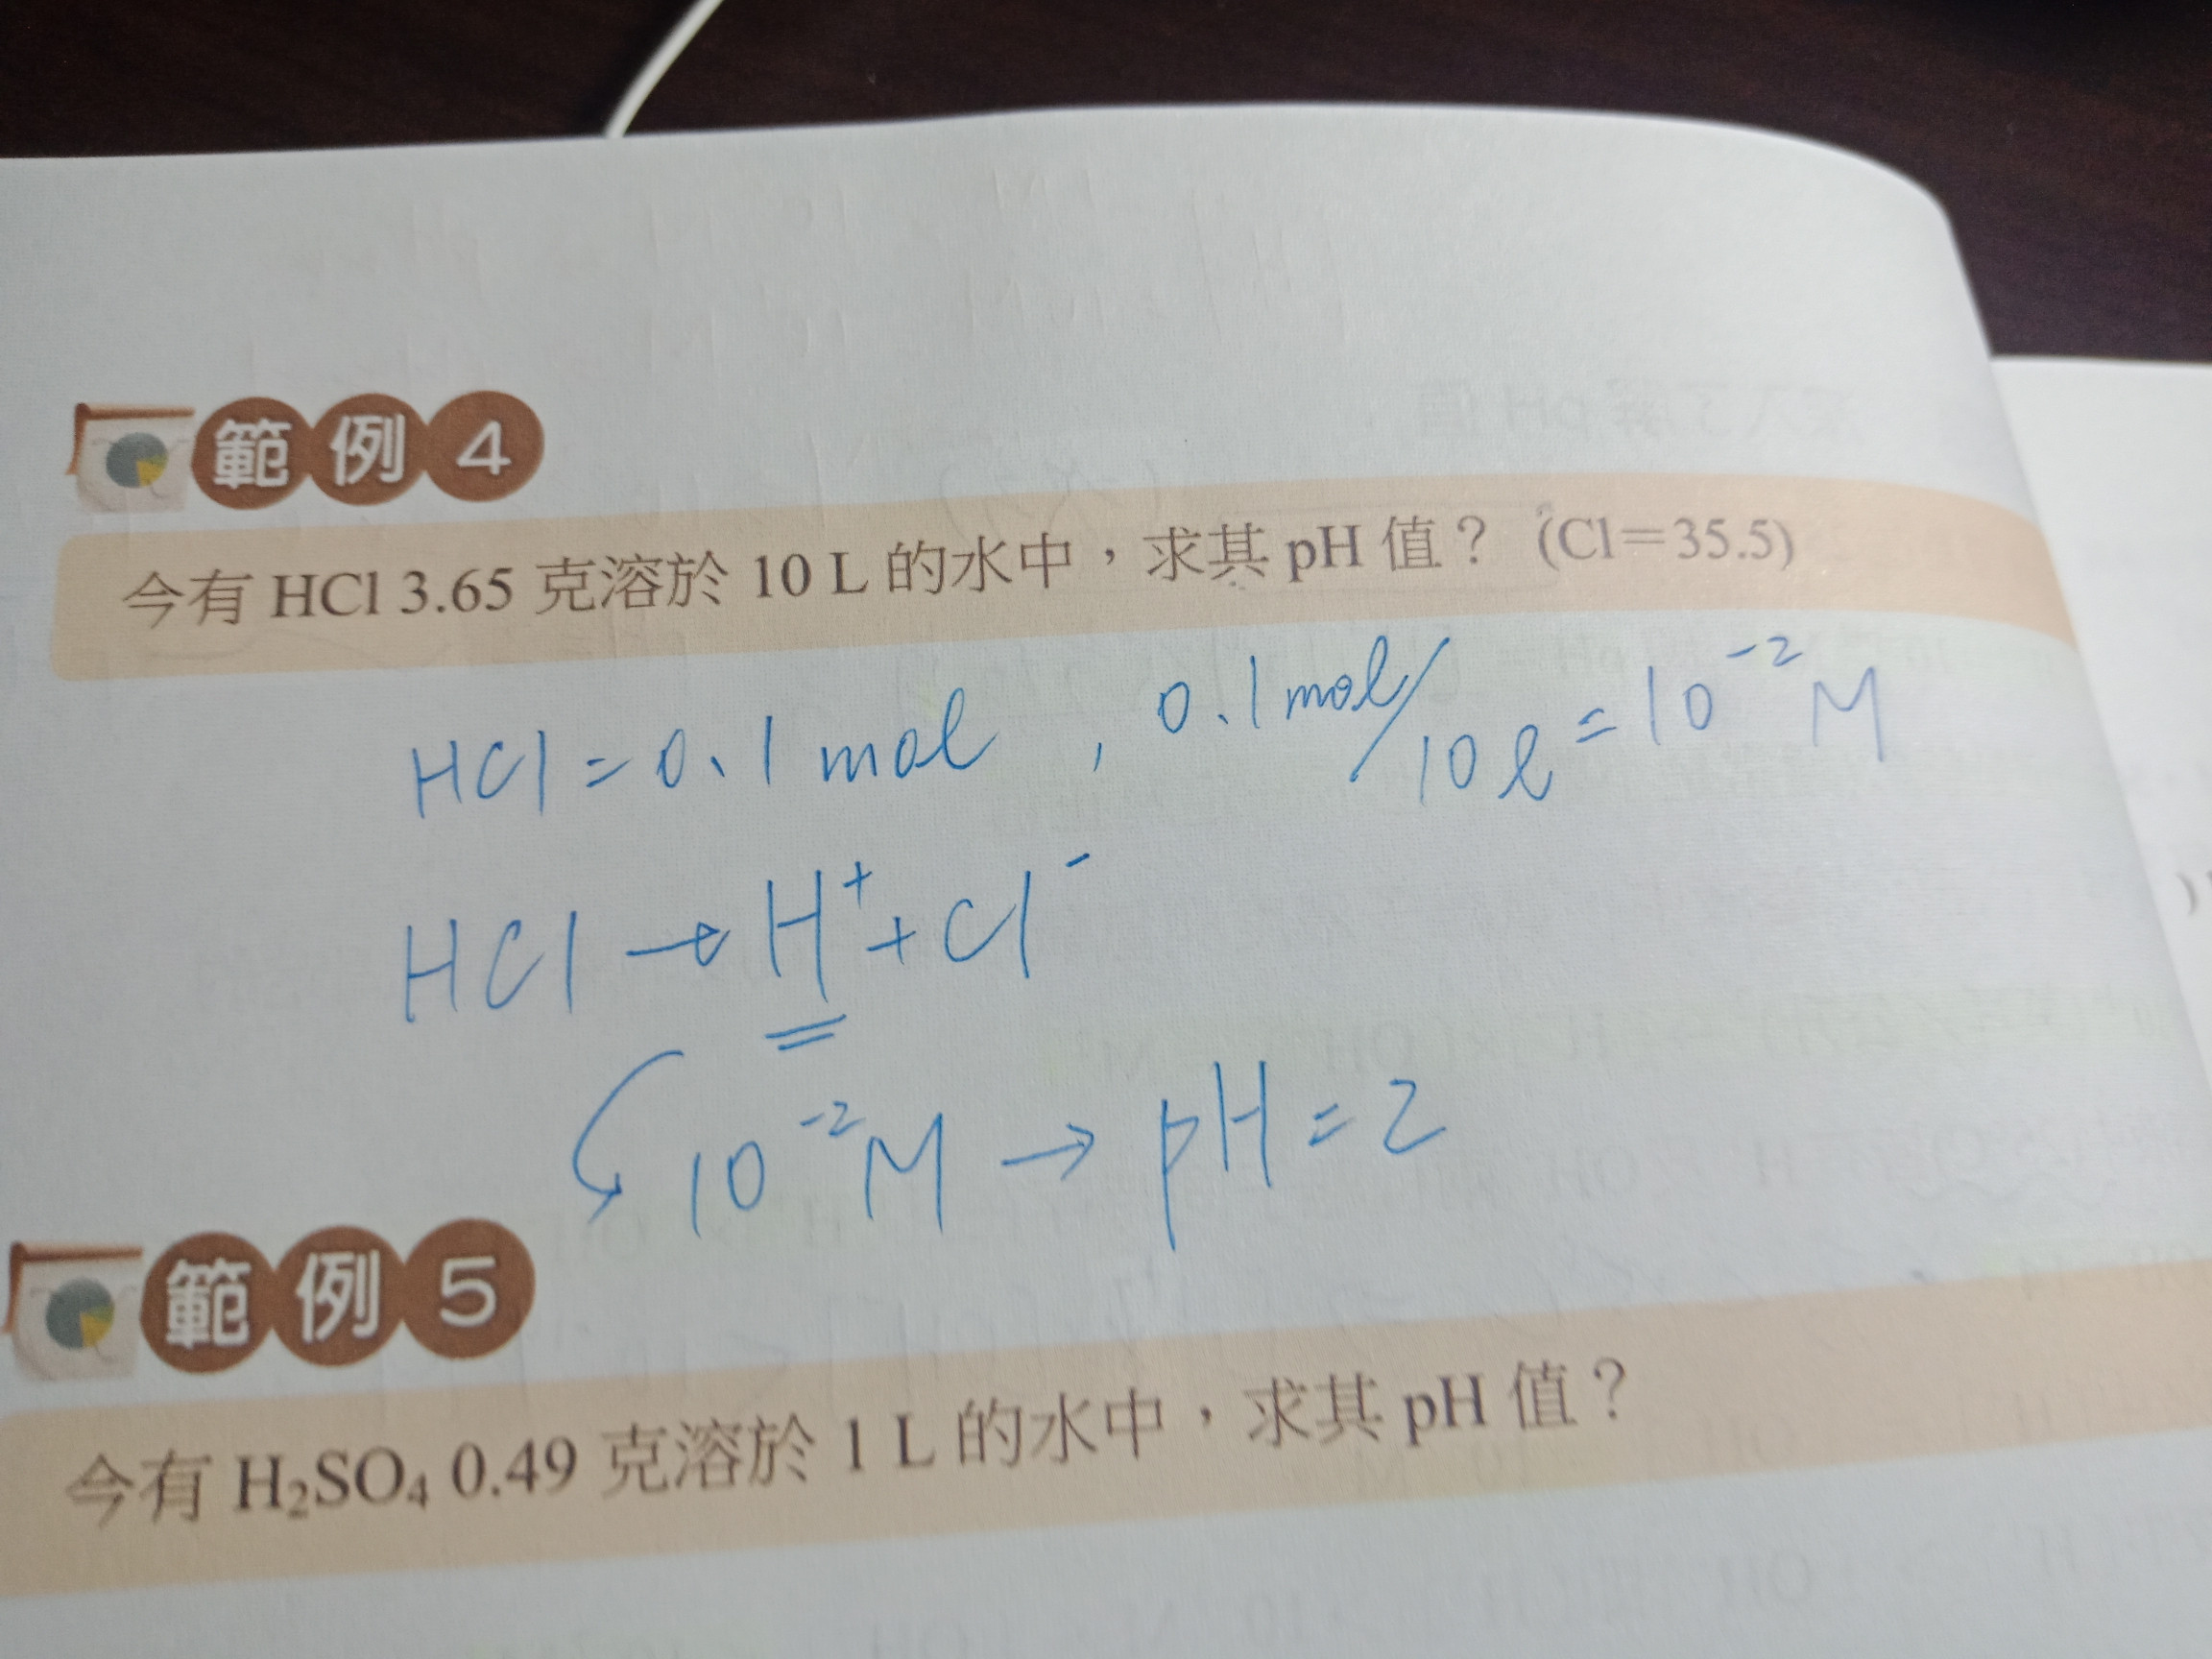 範例4
今有 HCl 3.65 克溶於 10 L 的水中，求其 pH 值？ (Cl＝35.5)
HCl = 0.1 mol , 0.1 mol/10 l = 10⁻² M
HCl → H⁺ + Cl⁻
10⁻² M → pH = 2
範例5
今有 H₂SO₄ 0.49 克溶於 1 L 的水中，求其 pH 值？